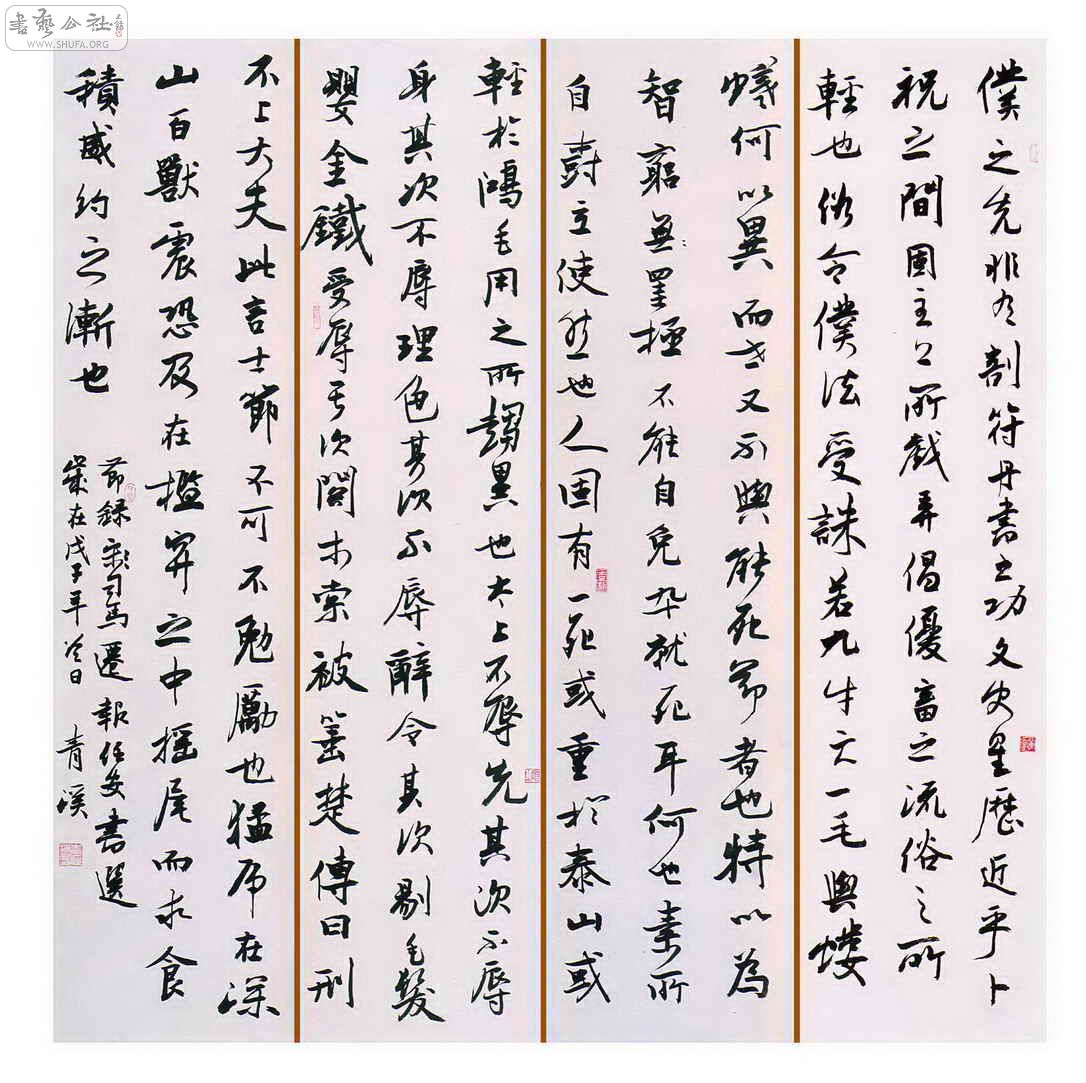 書藝公社
WWW.SHUFA.ORG
僕之先非有剖符丹書之功文史星歷近乎卜
祝之間固主上所戲弄倡優畜之流俗之所
輕也假令僕法受誅若九牛亡一毛與螻
蟻何以異而世又不與能死節者也特以為
智窮無罪極不能自免卒就死耳何也素所
自樹立使然也人固有一死或重於泰山或
輕於鴻毛用之所趨異也太上不辱先其次不辱
身其次不辱理色其次不辱辭令其次剔毛髮
嬰金鐵受辱其次關木索被箠楚傳曰刑
不上大夫此言士節不可不勉勵也猛虎在深
山百獸震恐及在檻穽之中搖尾而求食
積威約之漸也
節録司馬遷報任安書選
歲在戊子年冬日 青溪